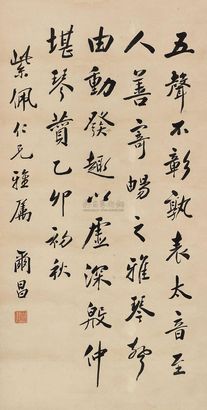 五聲不彰孰表太音至
人善寄暢之雅琴聲
由動發趣以虛深殷仲
堪琴贊乙卯初秋
紫佩仁兄雅屬 爾昌